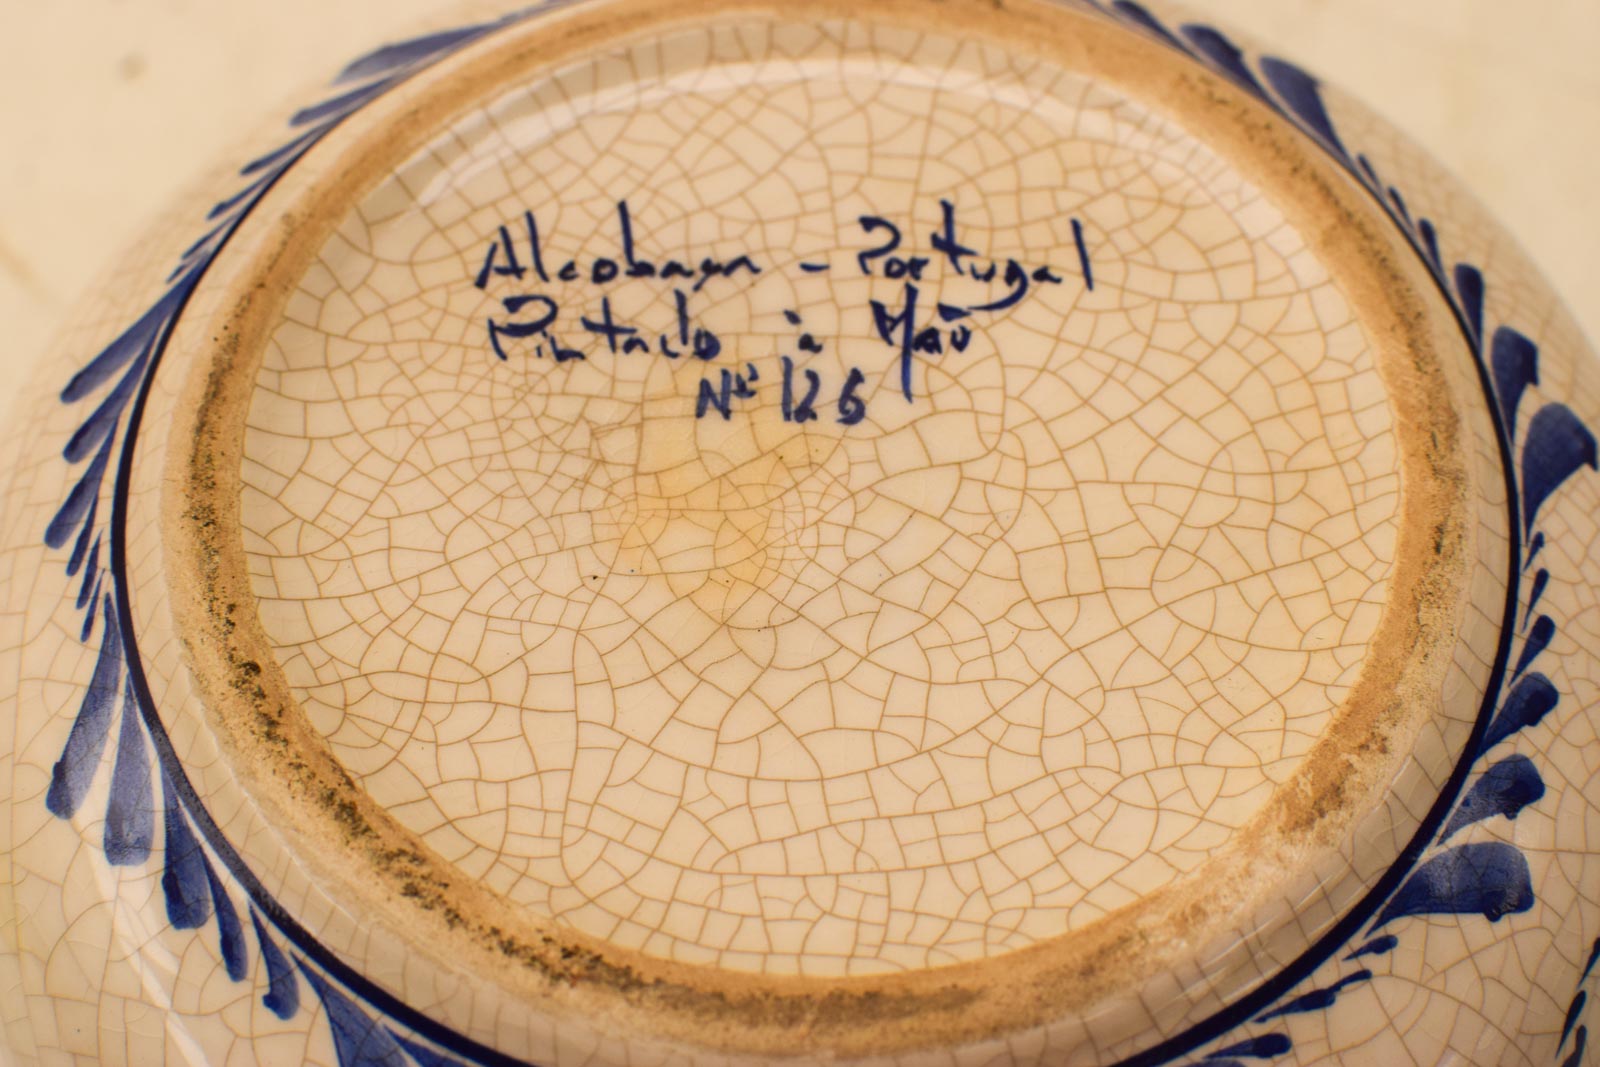 Alcobaça - Portugal
Pintado à Mão
Nº 126